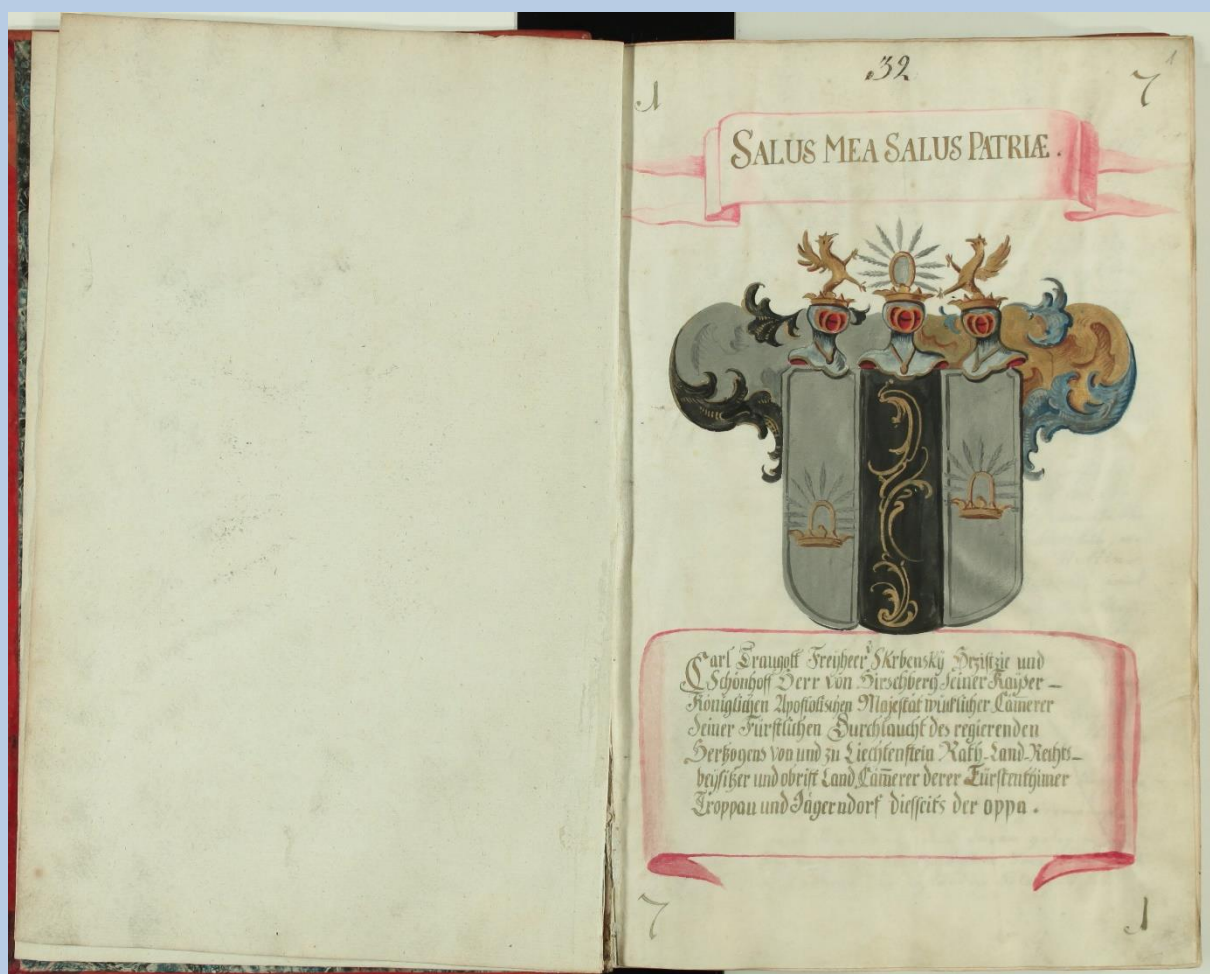 32
1
1 7
SALUS MEA SALUS PATRIÆ.
Carl Traugott Freÿheer Skrbenskÿ Hrzistzie und
Schönhoff Herr von Hirschberg Seiner Kaÿser–
Königlichen Apostolischen Majestät würklicher Cam̄erer
Seiner Fürstlichen Durchlaucht des regierenden
Hertzogens von und zu Liechtenstein Rath-Land-Rechts–
beÿsitzer und obrist Land Cam̄erer derer Fürstenthümer
Troppau und Jägerndorf diesseits der oppa.
7 1